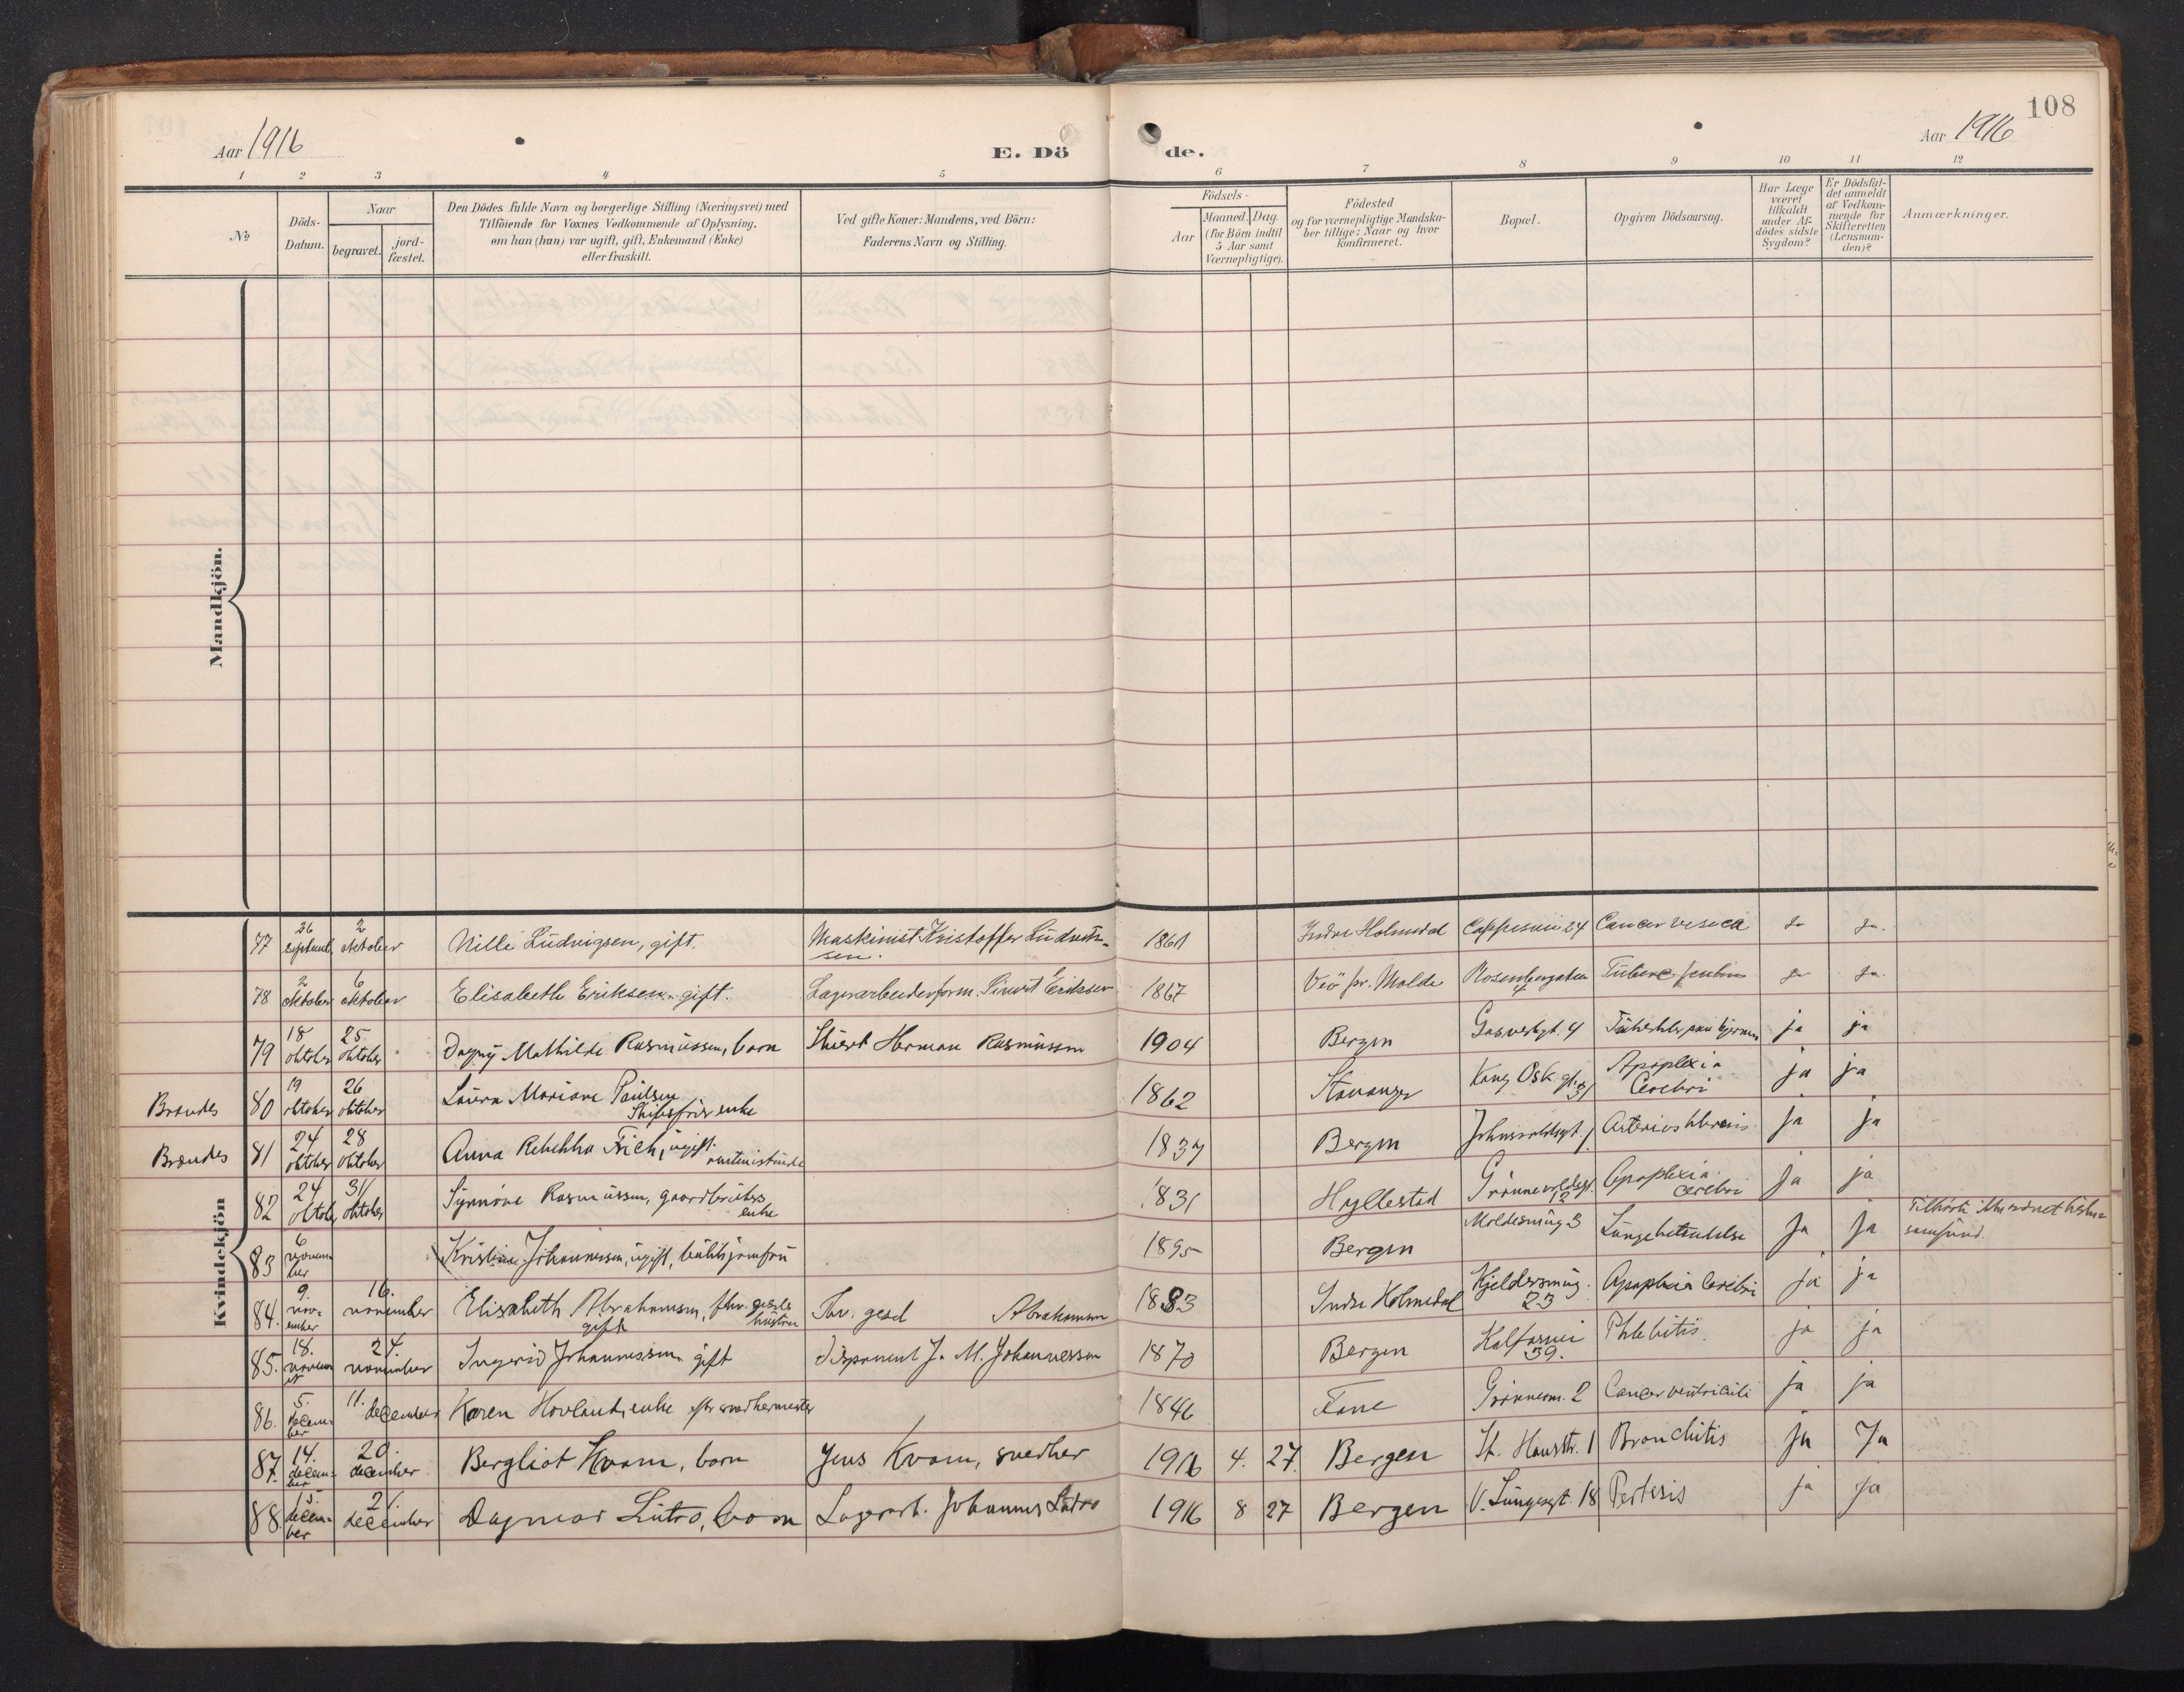 108
Aar 1916
Aar 1916
E. Dö de.
1 2 3 4 5 6 7 8 9 10 11 12
No
Döds-
Datum.
Naar
begravet.
jord-
fæstet.
Den Dödes fulde Navn og borgerlige Stilling (Næringsvei) med
Tilföiende for Voxnes Vedkommende af Oplysning,
om han (hun) var ugift, gift, Enkemand (Enke)
eller fraskilt.
Ved gifte Koner: Mandens, ved Börn:
Faderens Navn og Stilling.
Födsels-
Aar
Maaned. Dag.
(for Börn indtil
5 Aar samt
Værnepligtige).
Födested
og for værnepligtige Mandska-
ber tillige: Naar og hvor
konfirmeret.
Bopæl.
Opgiven Dödsaarsag.
Har Læge
været
tilkaldt
under Af-
dödes sidste
Sygdom?
Er Dödsfal-
det anmeldt
af Vedkom-
mende for
Skifteretten
(Lensman-
den)?
Anmærkninger.
Mandkjön.
Kvindekjön
77 26 septemb. 2 oktober Nilli Ludvigsen, gift. Maskinist Kristoffer Ludvig-
sen. 1861 Indre Holmedal 24 Cancer vesica ja ja.
78 2 oktober 6 oktober Elisabeth Eriksen, gift. Lagerarbeiderform. Sivert Eriksen 1867 Veö pr. Molde Rosenbergaten
4 ja ja.
79 18 oktober 25 oktober Dagny Mathilde Rasmussen, barn Sivert Herman Rasmussen 1904 Bergen Gasverkgt. 4 ja ja
Brændes 80 19 oktober 26 oktober Laura Mariane Paulsen
Skibsförer enke 1862 Stavanger Kong Osk. gt. 31 Apoplexia
Cerebri ja ja
Brændes 81 24 oktober 28 oktober Anna Rebekka Frich, ugift 1837 Bergen ja ja
82 24 oktober 31 oktober Synnöve Rasmussen, gaardbrukers
enke 1831 Hyllestad Grönnevoldsgt.
12 Apoplexia
cerebri ja ja
83 6 novem-
ber Kristine Johannessen, ugift, butikjomfru 1895 Bergen Moldesmug 3 Lungebetændelse ja ja Tilhörte
samfund.
84. 9. nov-
ember 16. november Elisabeth Abrahamsen,
gift hustru gesel Abrahamsen 1883 Indre Holmedal Kjeldersmug.
23 Apoplexia Cerebri ja ja
85. 18. novem-
ber 24. november Ingerid Johannessen gift Disponent J. M. Johannessen 1870 Bergen Kalfarvei
39. Phlebitis. ja ja
86. 5. decem-
ber 11. december Karen Hovland, enke efter snedkermester 1846 Fane 2 Cancer ventriculi ja ja
87. 14. decem-
ber 20. december Bergliot Kvam, barn Jens Kvam, snedker 1916 4. 27. Bergen St. Hansstr. 1 Bronchitis ja Ja
88. 15. decem-
ber 21. december Dagmar Lutro, barn Lagerarb. Johannes Lutro 1916 8 27 Bergen V. Lungegt. 18 Pertusis ja ja